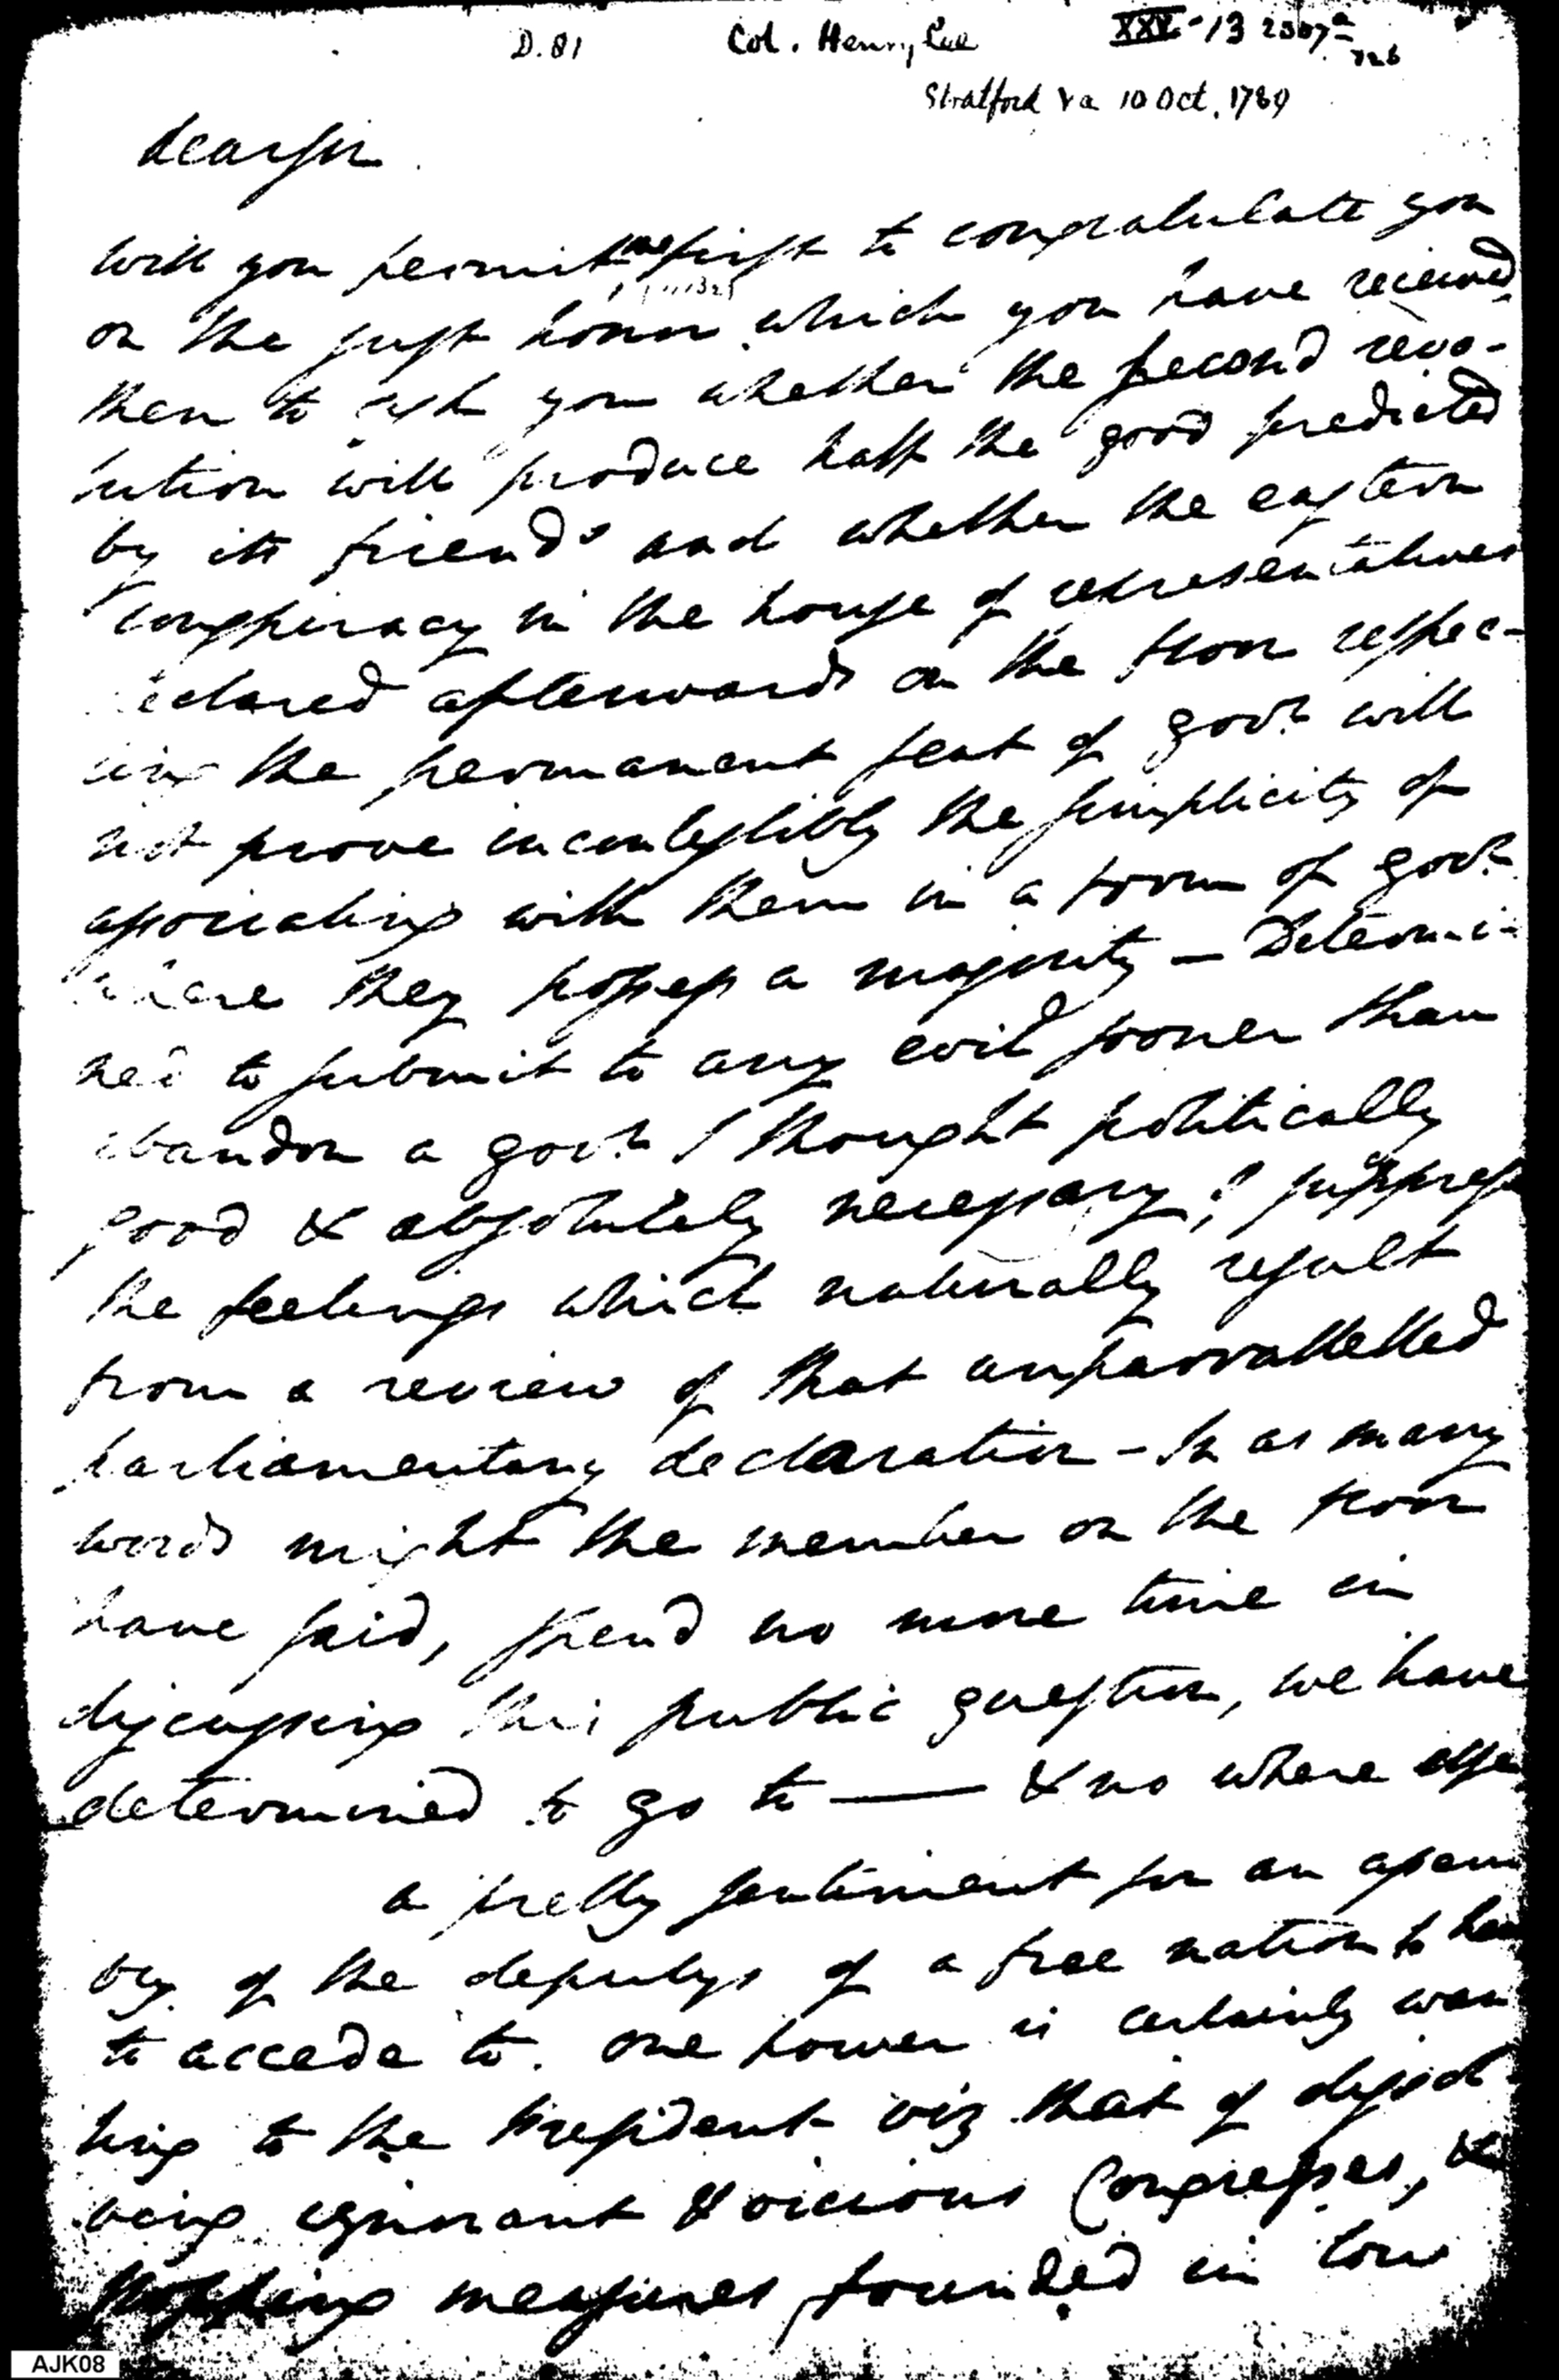 D.81 Col. Henry Lee XXV-13
Stratford Va 10 Oct. 1789
dear sir
Will you permit me first to congratulate you
on the just honor which you have received
then to ask you whether the second revo-
lution will produce half the good predicted
by its friends and whether the eastern
conspiracy in the house of representatives
declared afterwards on the floor respec-
ting the permanent seat of govt. will
not prove incontestibly the simplicity of
associating with them in a form of govt.
where they possess a majority — Determi-
ned to submit to any evil sooner than
abandon a govt. I thought politically
good & absolutely necessary, I suppress
the feelings which naturally result
from a review of that unparrallelled
parliamentary declaration – In as many
words might the member on the floor
have said, spend no more time in
discussing this public question, we have
determined to go to —— & no where else
a pretty sentiment for an assem
bly of the deputys of a free nation to
to accede to. one power is certainly wan
ting to the president viz that of dissol-
ving ignorant & vicious Congresses, &
stopping measures founded in low
AJK08